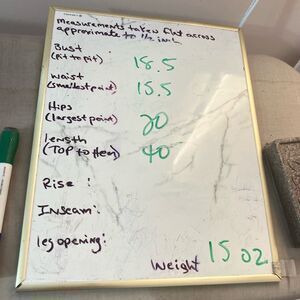 Measurements taken flat across
approximate to 1/2 inch
Bust
(Pit to pit) 18.5
Waist
(smallest point) 15.5
Hips
(largest point) 20
length
(TOP to Hem) 40
Rise :
Inseam:
leg opening:
Weight 15 oz